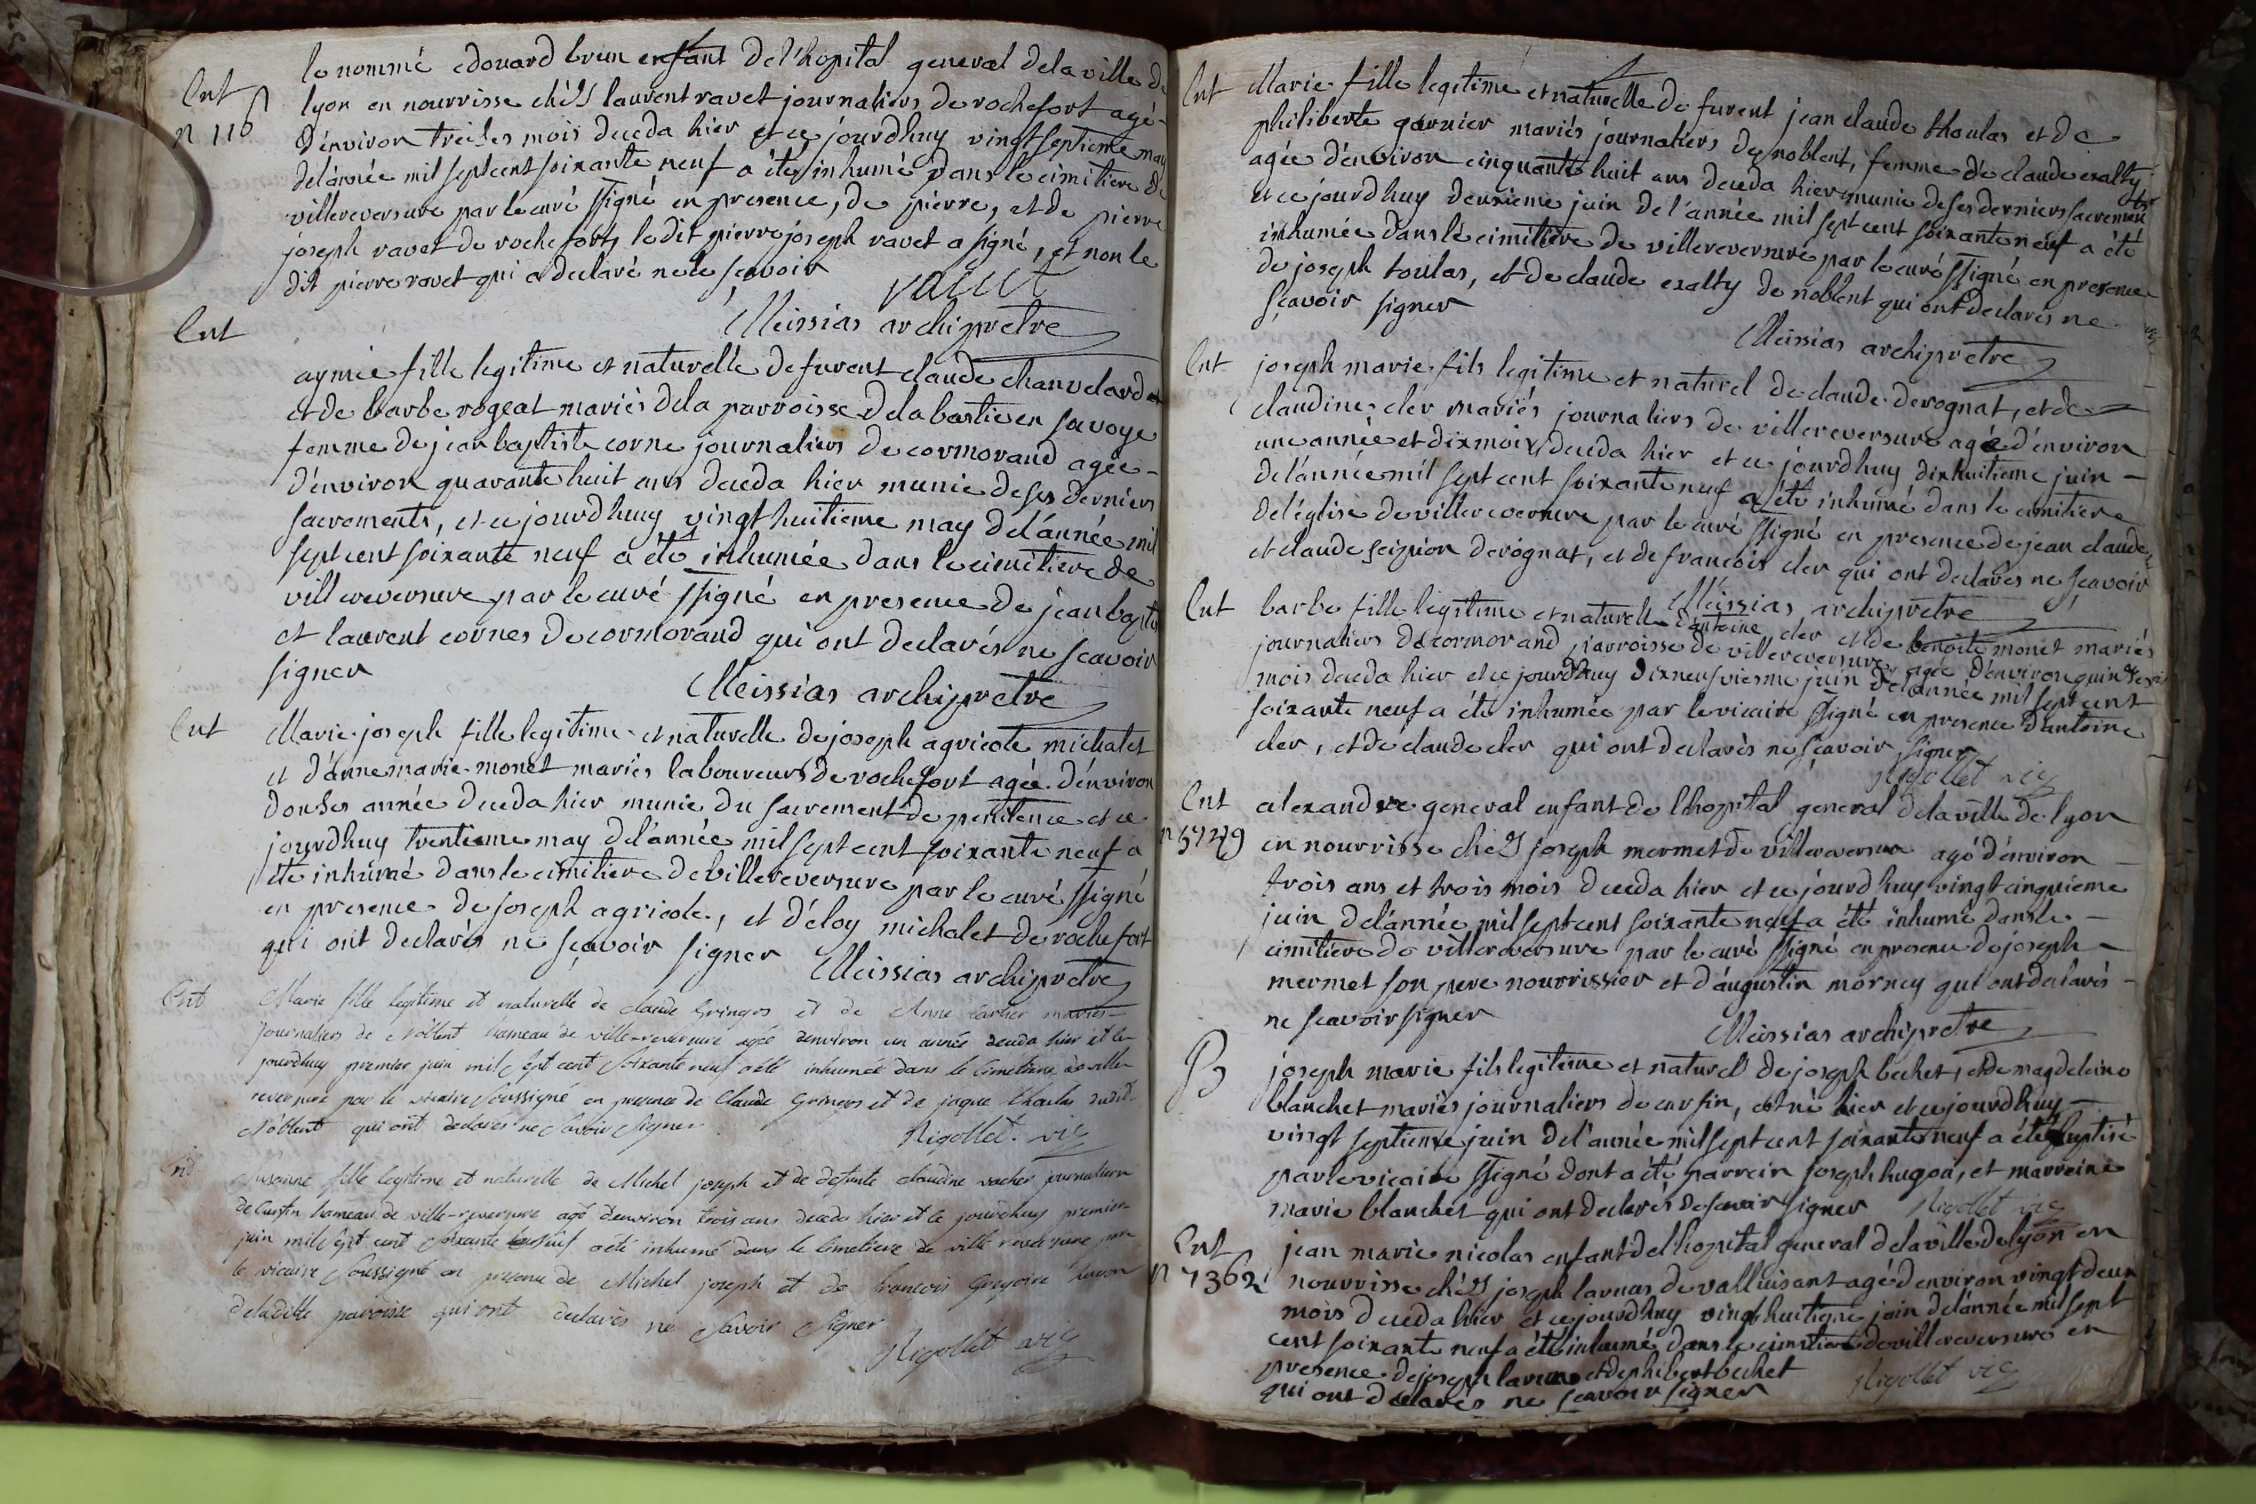 Ent
n 116
le nommé edouard brun enfant de l'hopital general dela ville de
lyon en nourrisse chés laurent ravet journaliers de rochefort agé
d'environ treises mois deceda hier et ce jourdhuy vingt septieme may
de l'année mil sept cent soixante neuf a été inhumé dans le cimitiere de
villereversure par le curé ssigné en presence, de pierre, et de pierre
joseph ravet de rochefort, le dit pierre joseph ravet a signé, et non le
dit pierre ravet qui a declaré ne le sçavoir
ravet
Meissias archiprêtre
Ent
aymée fille legitime et naturelle de furent claude chanvelard
et de barbe rogeat mariés dela parroisse dela bastie en savoye
femme de jean baptiste corne journaliers de cormorand agée
d'environ quarante huit ans deceda hier munie de ses derniers
sacrements, et ce jourdhuy vingt huitieme may de l'année mil
sept cent soixante neuf a été inhumée dans le cimitiere de
villereversure par le curé ssigné en presence de jean baptis
et laurent cornes de cormorand qui ont declarés ne scavoir
signer
Meissias archiprêtre
Ent
Marie joseph fille legitime et naturelle de joseph agricole michalet
et d'anne marie monet mariés laboureurs de rochefort agée d'environ
douses année deceda hier munie du sacrement de penitence et ce
jourdhuy trentieme may de l'année mil sept cent soixante neuf a
été inhumé dans le cimitiere de villereversure par le curé ssigné
en presence de joseph agricole, et d'éloy michalet de rochefort
qui ont declarés ne sçavoir signer
Meissias archiprêtre
Ent
Marie fille legitime et naturelle de claude Gringos et de Anne mariés
journaliers de Noblent hameau de ville-reversure agée denviron un année deceda hier et ce
jourdhuy premier juin mil sept cent soixante neuf a été inhumée dans le cimetiere de ville
reversure par le vicaire soussigné en presence de Claude et de jaque thoulas dudit
Noblent qui ont declarés ne savoir signer
Rigollet vic
Ent
Susanne fille legitime et naturelle de Michel joseph et de defunte claudine vacher journaliers
de Curfin hameau de ville-reversure agé denviron trois ans deceda hier et ce jourdhuy premier
juin mil sept cent soixante neuf a été inhumé dans le cimetiere de ville reversure par
le vicaire soussigné en presence de Michel joseph et de francois Gregoire
deladitte paroisse qui ont declarés ne savoir signer
Rigollet vic
Ent
Marie fille legitime et naturelle de furent jean claude thoulas et de
philiberte garnier mariés journaliers de noblent, femme de claude exalty
agée d'environ cinquante huit ans deceda hier munie de ses derniers sacrements
et ce jourdhuy deuxieme juin de l'année mil sept cent soixante neuf a été
inhumée dans le cimitiere de villereversure par le curé ssigné en presence
de joseph toulas, et de claude exalty de noblent qui ont declarés ne
sçavoir signer
Meissias archiprêtre
Ent
joseph marie fils legitime et naturel de claude derognat, et de
claudine cler mariés journaliers de villereversure agée d'environ
une année et dix mois, deceda hier et ce jourdhuy dixhuitieme juin
de l'année mil sept cent soixante neuf a été inhumé dans le cimitiere
del'église de villereversure par le curé ssigné en presence de jean claude
et claude scipion derognat, et de francois cler qui ont declarés ne sçavoir
Meissias archiprêtre
Ent
barbe fille legitime et naturelle d'antoine cler et de benoite monet mariés
journaliers de cormorand parroisse de villereversure agée d'environ quinses
mois deceda hier et ce jourdhuy dixneufviesme juin de l'année mil sept cent
soixante neuf a été inhumée par le vicaire ssigné en presence d'antoine
cler, et de claude cler qui ont declarés ne sçavoir signer
Rigollet vic
Ent
n 5749
alexandre general enfant de l'hopital general dela ville de lyon
en nourrisse chés joseph mermet de villereversure agé d'environ
trois ans et trois mois deceda hier et ce jourdhuy vingt cinquieme
juin de l'année mil sept cent soixante neuf a été inhumé dans le
cimitiere de villereversure par le curé ssigné en presence de joseph
mermet son pere nourrissier et d'augustin mornay qui ont declarés
ne scavoir signer
Meissias archiprêtre
B
joseph marie fils legitime et naturel de joseph bechet, et de magdeleine
blanchet mariés journaliers de curfin, est né hier et ce jourdhuy
vingt septieme juin de l'année mil sept cent soixante neuf a été baptisé
par le vicaire ssigné dont a été parrein joseph hugon, et marreine
marie blanchet qui ont declarés de scavoir signer
Rigollet vic
Ent
n 7362
jean marie nicolas enfant de l'hopital general dela ville de lyon en
nourrisse chés joseph lavuas de valluisant agé d'environ vingt deux
mois deceda hier et ce jourdhuy vingt huitieme juin de l'année mil sept
cent soixante neuf a été inhumé dans le cimitiere de villereversure en
presence de joseph et de philibert bechet
qui ont declarés ne scavoir signer
Rigollet vic